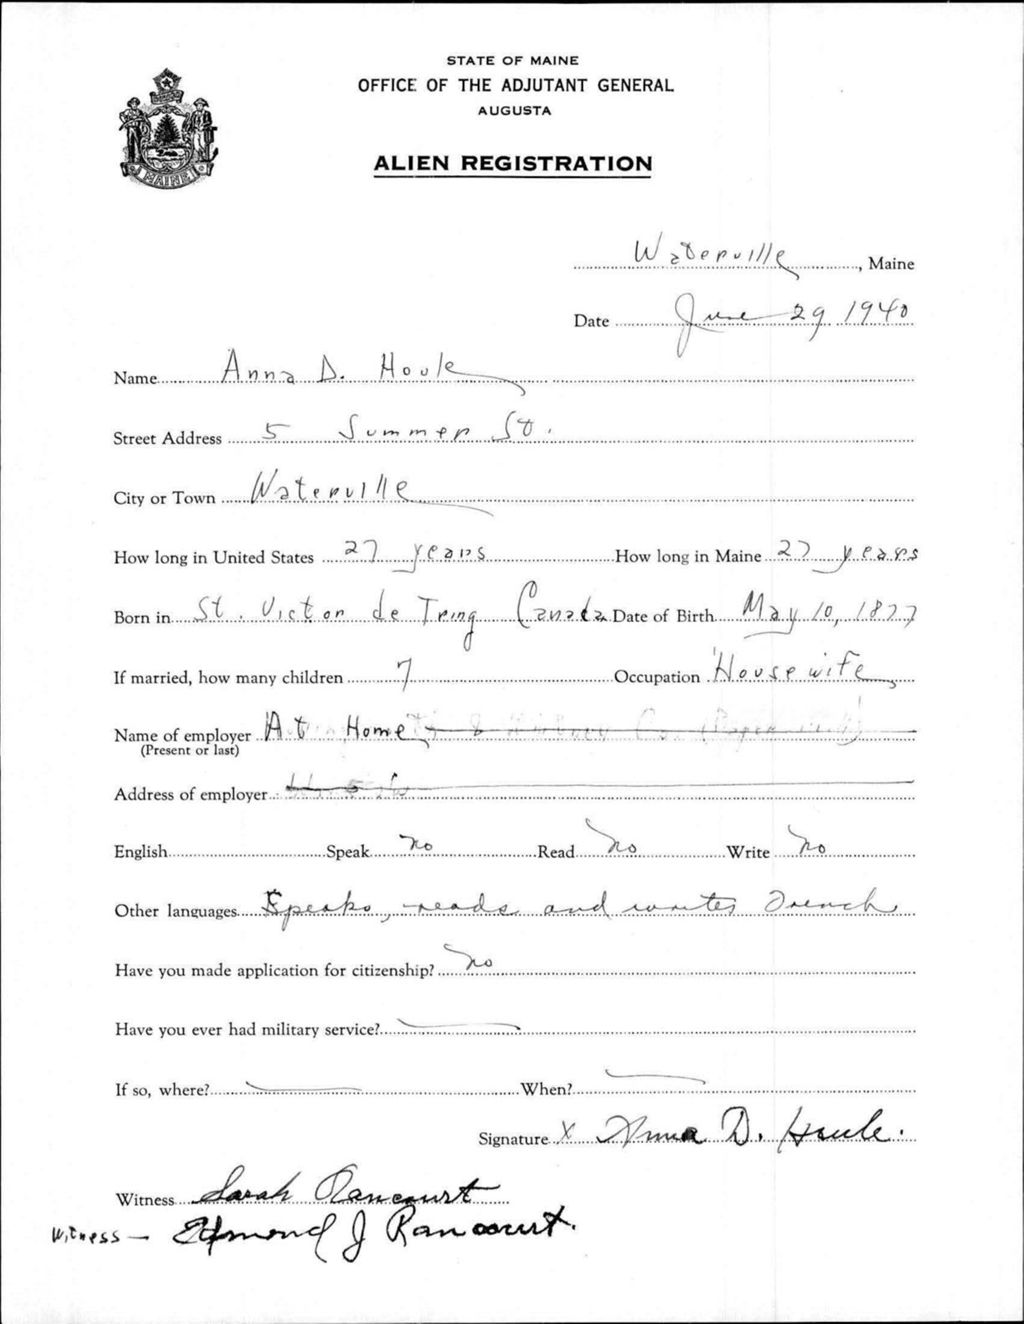 STATE OF MAINE
OFFICE OF THE ADJUTANT GENERAL
AUGUSTA
ALIEN REGISTRATION
MAINE
Waterville, Maine
Date June 29 1940
Name Anna D. Houle
Street Address 5 Summer St.
City or Town Waterville
How long in United States 27 years How long in Maine 27 years
Born in St. Victor de Tring Canada Date of Birth May 10, 1877
If married, how many children 7 Occupation Housewife
Name of employer At Home
(Present or last)
Address of employer
English Speak No Read No Write No
Other languages Speaks, reads and writes French
Have you made application for citizenship? No
Have you ever had military service?
If so, where? When?
Signature X Anna D. Houle.
Witness Sarah Rancourt
Witness — Edmond J Rancourt.